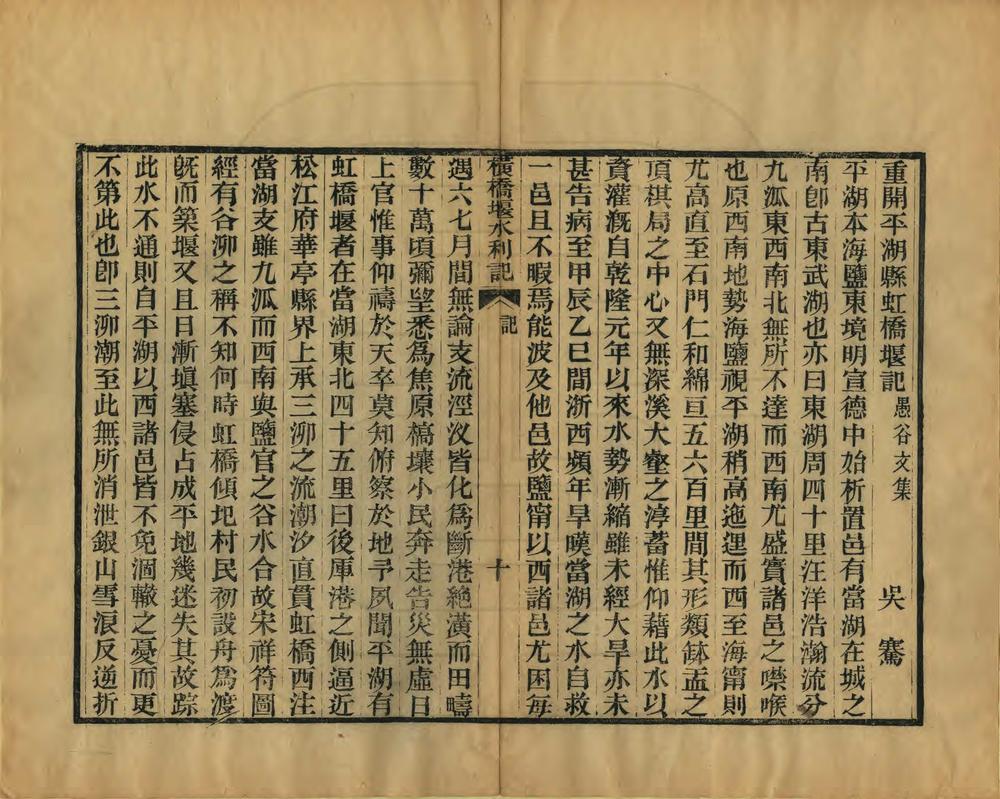 重開平湖縣虹橋堰記 愚谷文集 吳騫
平湖本海鹽東境明宣德中始析置邑有當湖在城之
南卽古東武湖也亦曰東湖周四十里汪洋浩瀚流分
九派東西南北無所不達而西南尤盛實諸邑之㗋喉
也原西南地勢海鹽視平湖稍高迤𨓦而西至海甯則
尤高直至石門仁和綿亘五六百里間其形類缽盂之
頂棋局之中心又無深溪大壑之渟蓄惟仰藉此水以
資灌漑自乾隆元年以來水勢漸縮雖未經大旱亦未
甚告病至甲辰乙巳間浙西頻年旱暵當湖之水自救
一邑且不暇焉能波及他邑故鹽甯以西諸邑尤困每
橫橋堰水利記 記 十
遇六七月間無論支流涇汊皆化爲斷港絕潢而田疇
數十萬頃彌望悉爲焦原槁壤小民奔走告災無虛日
上官惟事仰禱於天卒莫知俯察於地予夙聞平湖有
虹橋堰者在當湖東北四十五里曰後厙港之側逼近
松江府華亭縣界上承三泖之流潮汐直貫虹橋西注
當湖支雖九派而西南與鹽官之谷水合故宋祥符圖
經有谷泖之稱不知何時虹橋傾圯村民初設舟爲渡
旣而築堰又且日漸塡塞侵占成平地幾迷失其故踪
此水不通則自平湖以西諸邑皆不免涸轍之憂而更
不第此也卽三泖潮至此無所消泄銀山雪浪反逆折